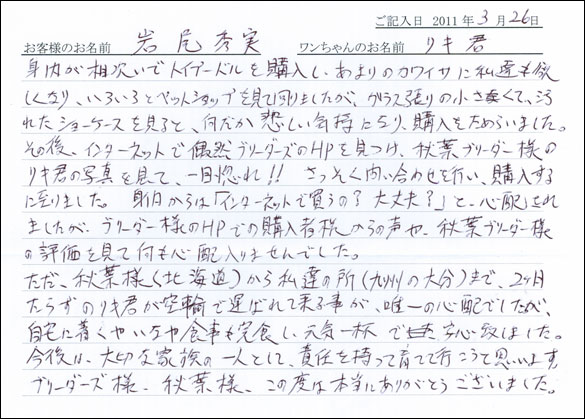 ご記入日 2011年3月26日
お客様のお名前 岩尾秀実 ワンちゃんのお名前 リキ君
身内が相次いでトイプードルを購入し、あまりのカワイサに私達も欲
しくなり、いろいろとペットショップを見て回りましたが、ガラス張りの小さくて、汚
れたショーケースを見ると、何だか悲しい気持になり、購入をためらいました。
その後、インターネットで偶然ブリーダーズのHPを見つけ、秋葉ブリーダー様の
リキ君の写真を見て、一目惚れ!! さっそく問い合せを行い、購入する
に至りました。身内からは「インターネットで買うの?大丈夫?」と、心配され
ましたが、ブリーダー様のHPでの購入者様からの声や、秋葉ブリーダー様
の評価を見て何も心配入りませんでした。
ただ、秋葉様(北海道)から私達の所(九州の大分)まで、2ヶ月
たらずのリキ君が空輸で運ばれて来る事が、唯一の心配でしたが、
自宅に着くやいなや食事も完食し、元気一杯で安心致しました。
今後は、大切な家族の一人として、責任を持って育てて行こうと思います。
ブリーダーズ様、秋葉様、この度は本当にありがとうございました。